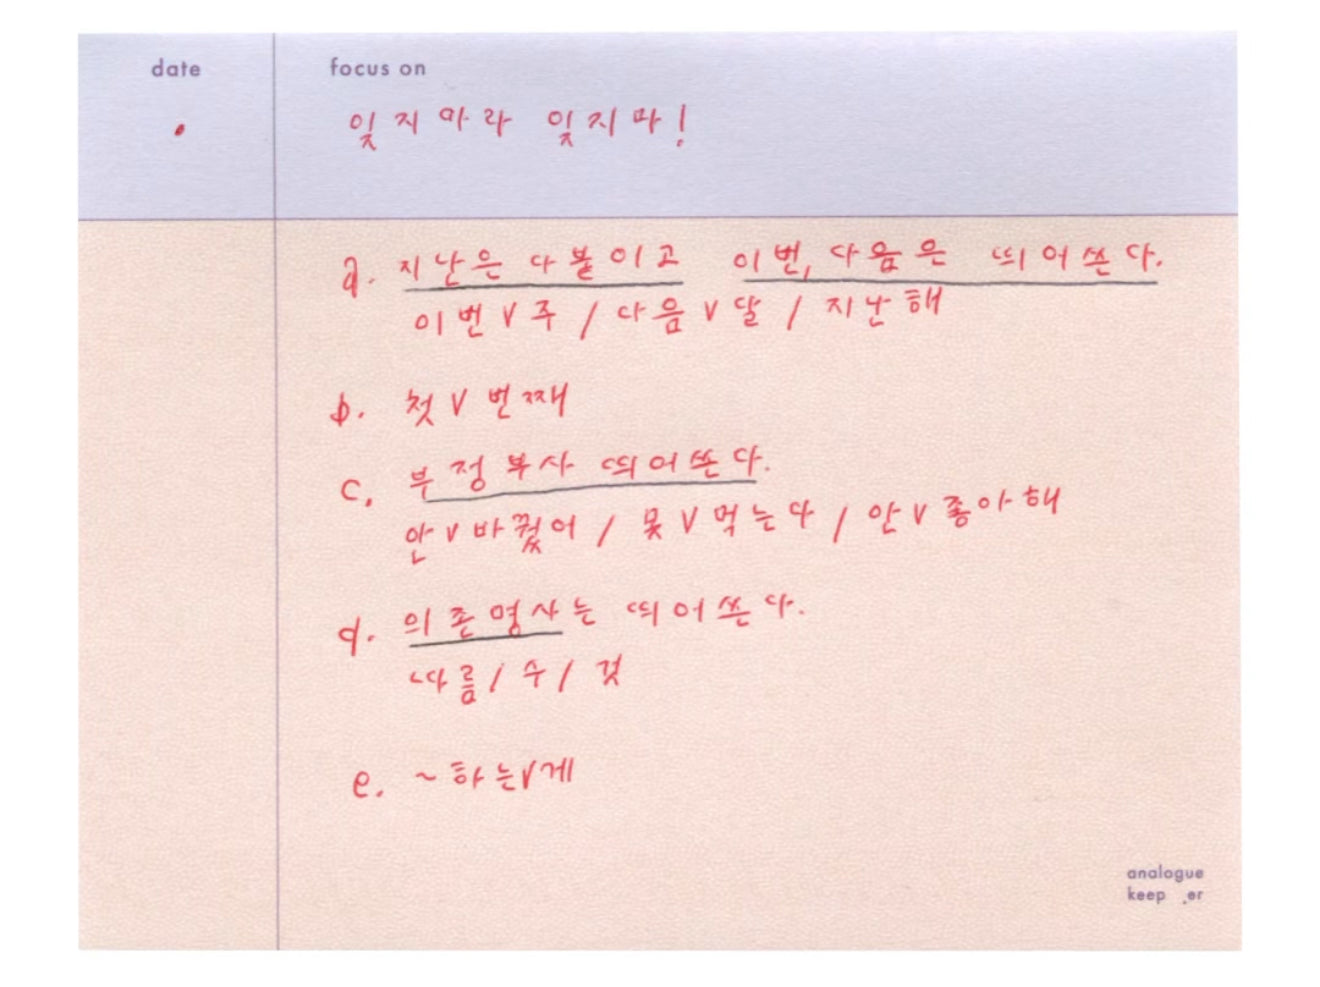 date
focus on
잊지마라 잊지마!
a. 지난은 다 붙이고 이번, 다음은 띄어쓴다.
이번V주 / 다음V달 / 지난해
b. 첫V번째
c. 부정부사 띄어쓴다.
안V바꿨어 / 못V먹는다 / 안V좋아해
d. 의존명사는 띄어쓴다.
따름/수/것
e. ~하는V게
analogue
keep_er